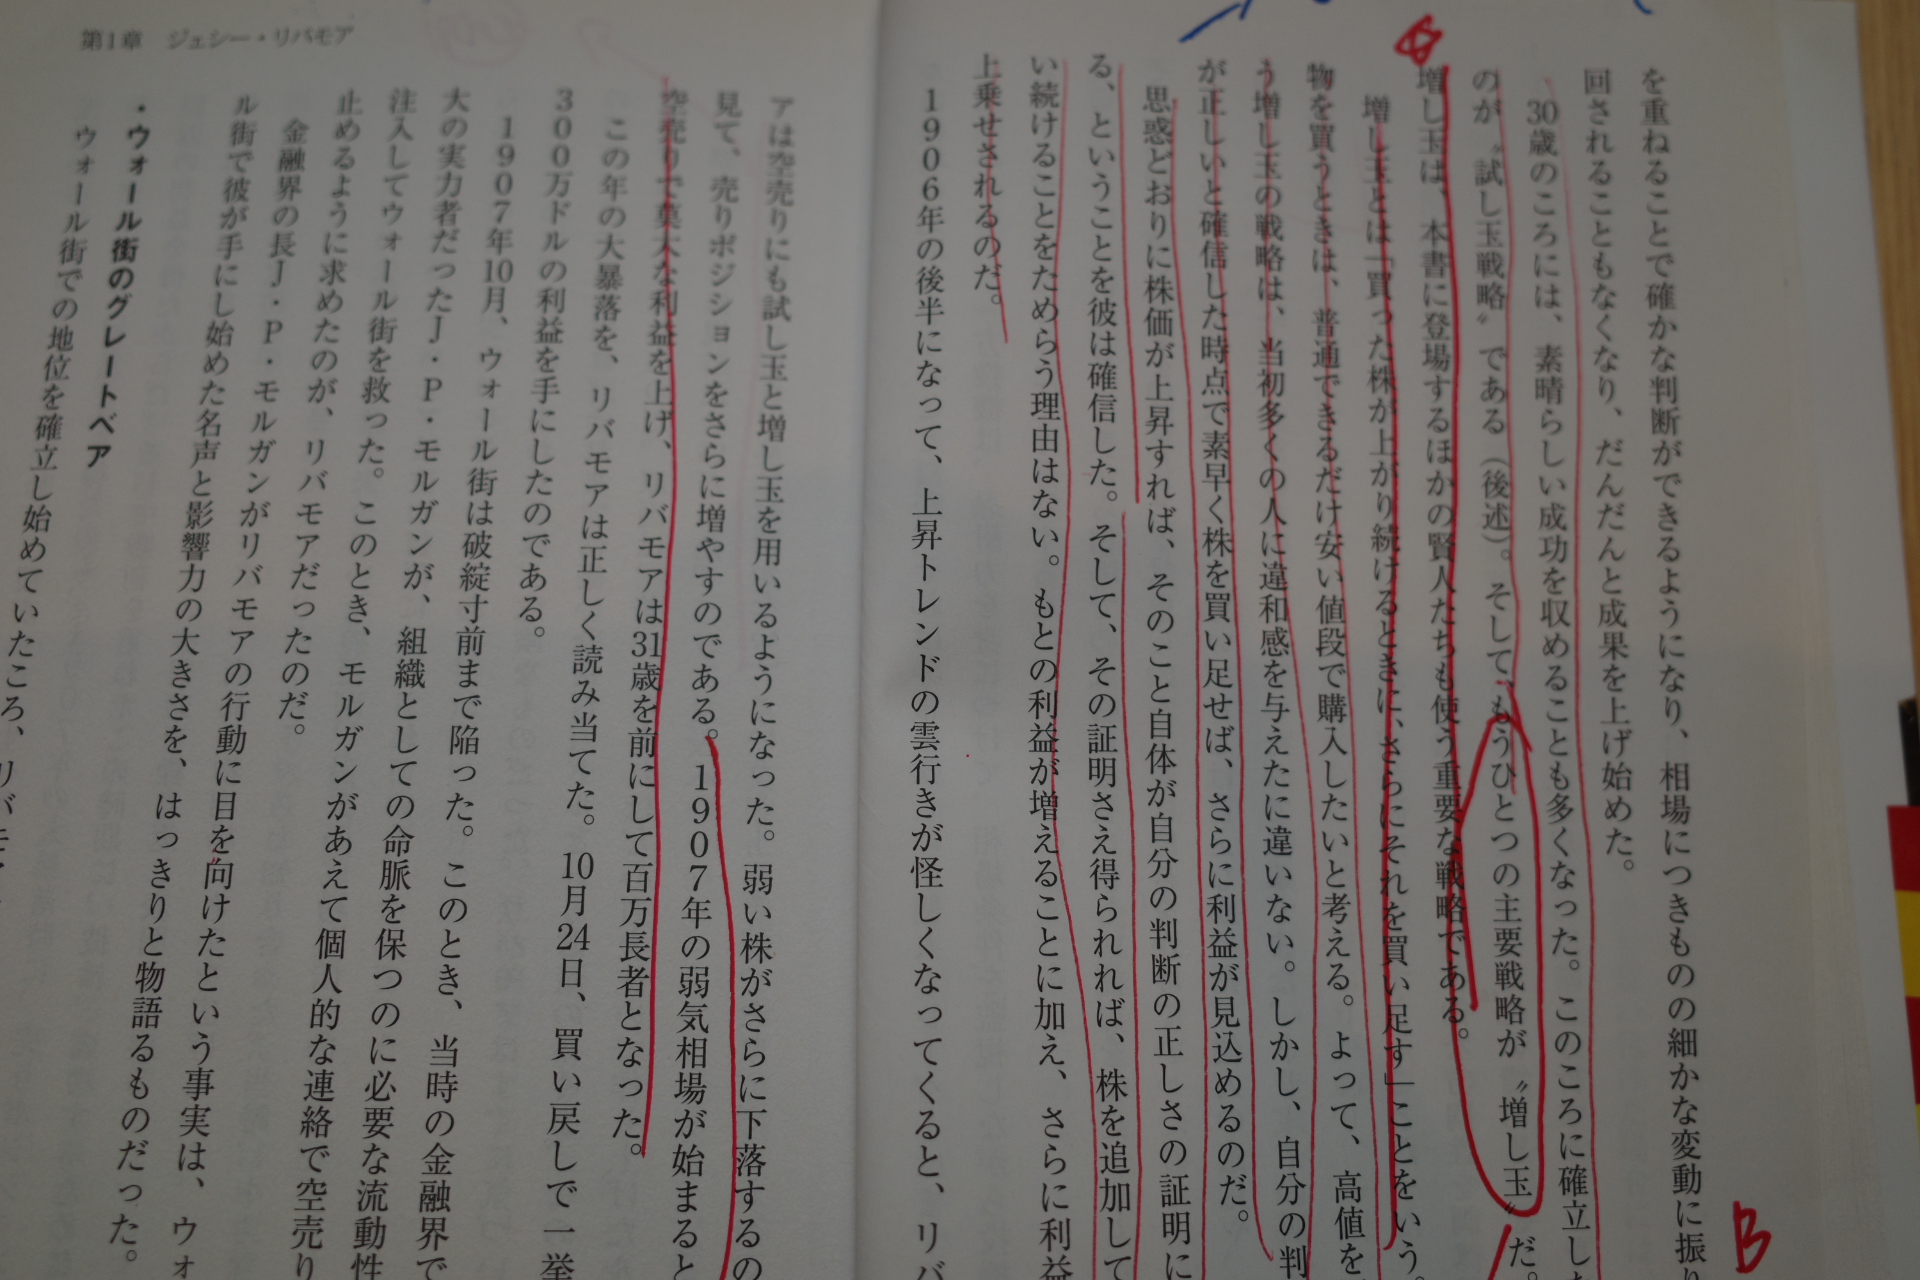 を重ねることで確かな判断ができるようになり、相場につきものの細かな変動に振り
回されることもなくなり、だんだんと成果を上げ始めた。
30歳のころには、素晴らしい成功を収めることも多くなった。このころに確立した
のが〝試し玉戦略〟である（後述）。そして、もうひとつの主要戦略が〝増し玉〟だ。
増し玉は、本書に登場するほかの賢人たちも使う重要な戦略である。
増し玉とは「買った株が上がり続けるときに、さらにそれを買い足す」ことをいう。
物を買うときは、普通できるだけ安い値段で購入したいと考える。よって、高値を
う増し玉の戦略は、当初多くの人に違和感を与えたに違いない。しかし、自分の判
が正しいと確信した時点で素早く株を買い足せば、さらに利益が見込めるのだ。
思惑どおりに株価が上昇すれば、そのこと自体が自分の判断の正しさの証明に
る、ということを彼は確信した。そして、その証明さえ得られれば、株を追加して
い続けることをためらう理由はない。もとの利益が増えることに加え、さらに利益
上乗せされるのだ。
1906年の後半になって、上昇トレンドの雲行きが怪しくなってくると、リバ
B
第1章 ジェシー・リバモア
アは空売りにも試し玉と増し玉を用いるようになった。弱い株がさらに下落するの
見て、売りポジションをさらに増やすのである。1907年の弱気相場が始まると
空売りで莫大な利益を上げ、リバモアは31歳を前にして百万長者となった。
この年の大暴落を、リバモアは正しく読み当てた。10月24日、買い戻しで一挙
300万ドルの利益を手にしたのである。
1907年10月、ウォール街は破綻寸前まで陥った。このとき、当時の金融界で
大の実力者だったJ・P・モルガンが、組織としての命脈を保つのに必要な流動性
注入してウォール街を救った。このとき、モルガンがあえて個人的な連絡で空売り
止めるように求めたのが、リバモアだったのだ。
金融界の長J・P・モルガンがリバモアの行動に目を向けたという事実は、ウォ
ル街で彼が手にし始めた名声と影響力の大きさを、はっきりと物語るものだった。
・ウォール街のグレートベア
ウォール街での地位を確立し始めていたころ、リバモ